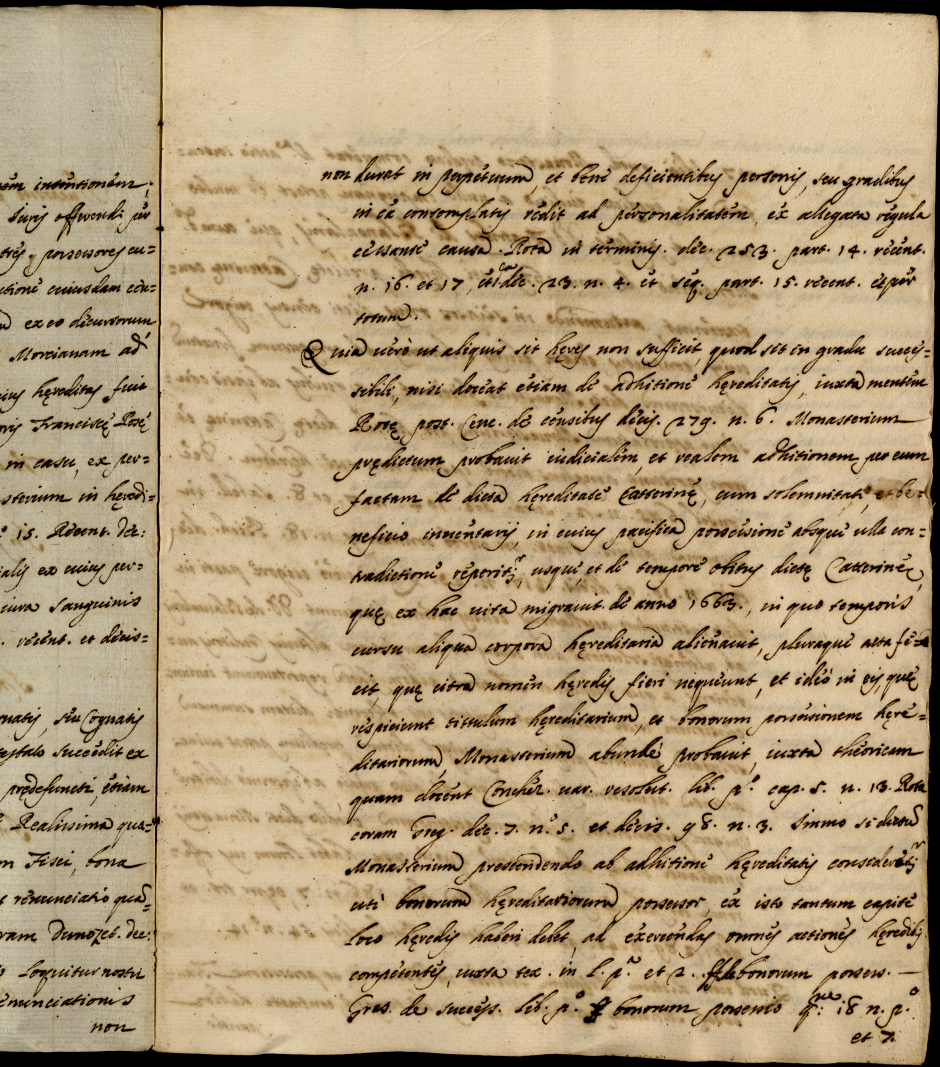 nem intentionem;
Juris offerendi per
tres, possessores cu=
ctione cuiusdam ccu=
ex eo decursorum
Morcianam ad
cuius hęreditas fuit
oris Franciscę Rosę
in casu, ex per=
asterium in hęredi=
15. Recent. dec:
ialis ex cuius per=
iura Sanguinis
recent. et decis=
gnatis, seu Cognatis
testato succedit ex
prędefuncti, etiam
Realissima qua=
m Fisci, bona
t renunciatio quā=
ram Dunozet. dec:
loquitur nostri
renunciationis
non
non durat in perpetuum, et benè deficientibus personis, seu gradibus
in ea contemplatis redit ad personalitatem, ex allegata regula
cessante causa. Rota in terminis. dec. 253. part. 14. recent.
n. 16. et 17, et dec. 23. n. 4. et seq. part. 15. recent. et per
totum.
Quia verò ut aliquis sit hęres non sufficit quod sit in gradu succes=
sibili, nisi doceat etiam de adhitione hęreditatis, iuxta mentem
Rotę post. Cenc. de censibus decis. 279. n. 6. Monasterium
prędictum probavit iudicialem, et realem adhitionem per eum
factam de dicta hęreditate Catterinę, cum solemnitati, et be=
neficio inventarij, in cuius pacifica possessione absque ulla con=
tradictione reperitr, usque, et de tempore obitus dictę Catterinę,
quę ex hac vita migravit de anno 1663., in quo temporis
cursu aliqua corpora hęreditaria alienavit, pluraque acta fe=
cit, quę citra nomen hęredis fieri nequeunt, et ideò in eis, quę
respiciunt tittulum hęreditarium, et bonorum possessionem hęre=
ditariorum, Monasterium abundè probavit, iuxta theoricam
quam docent Conchèr. var. resolut. lib. p.º cap. 5. n. 13. Rota
coram Greg. dec. 7. n.º 5. et decis. 98. n. 3. Immo si dictū
Monasterium prestendendo ab adhitione hęreditatis consideretr
uti bonorum hęreditariorum possessor ex isto tantum capite
loco hęredis haberi debet, ad exercendas omnes actiones hęredibus
competentes, iuxta tex. in l. p.ª et 2. ff. bonorum possess. —
Gras. de success. lib. p.º § bonorum possessio q. 18 n. p.º
et 7.